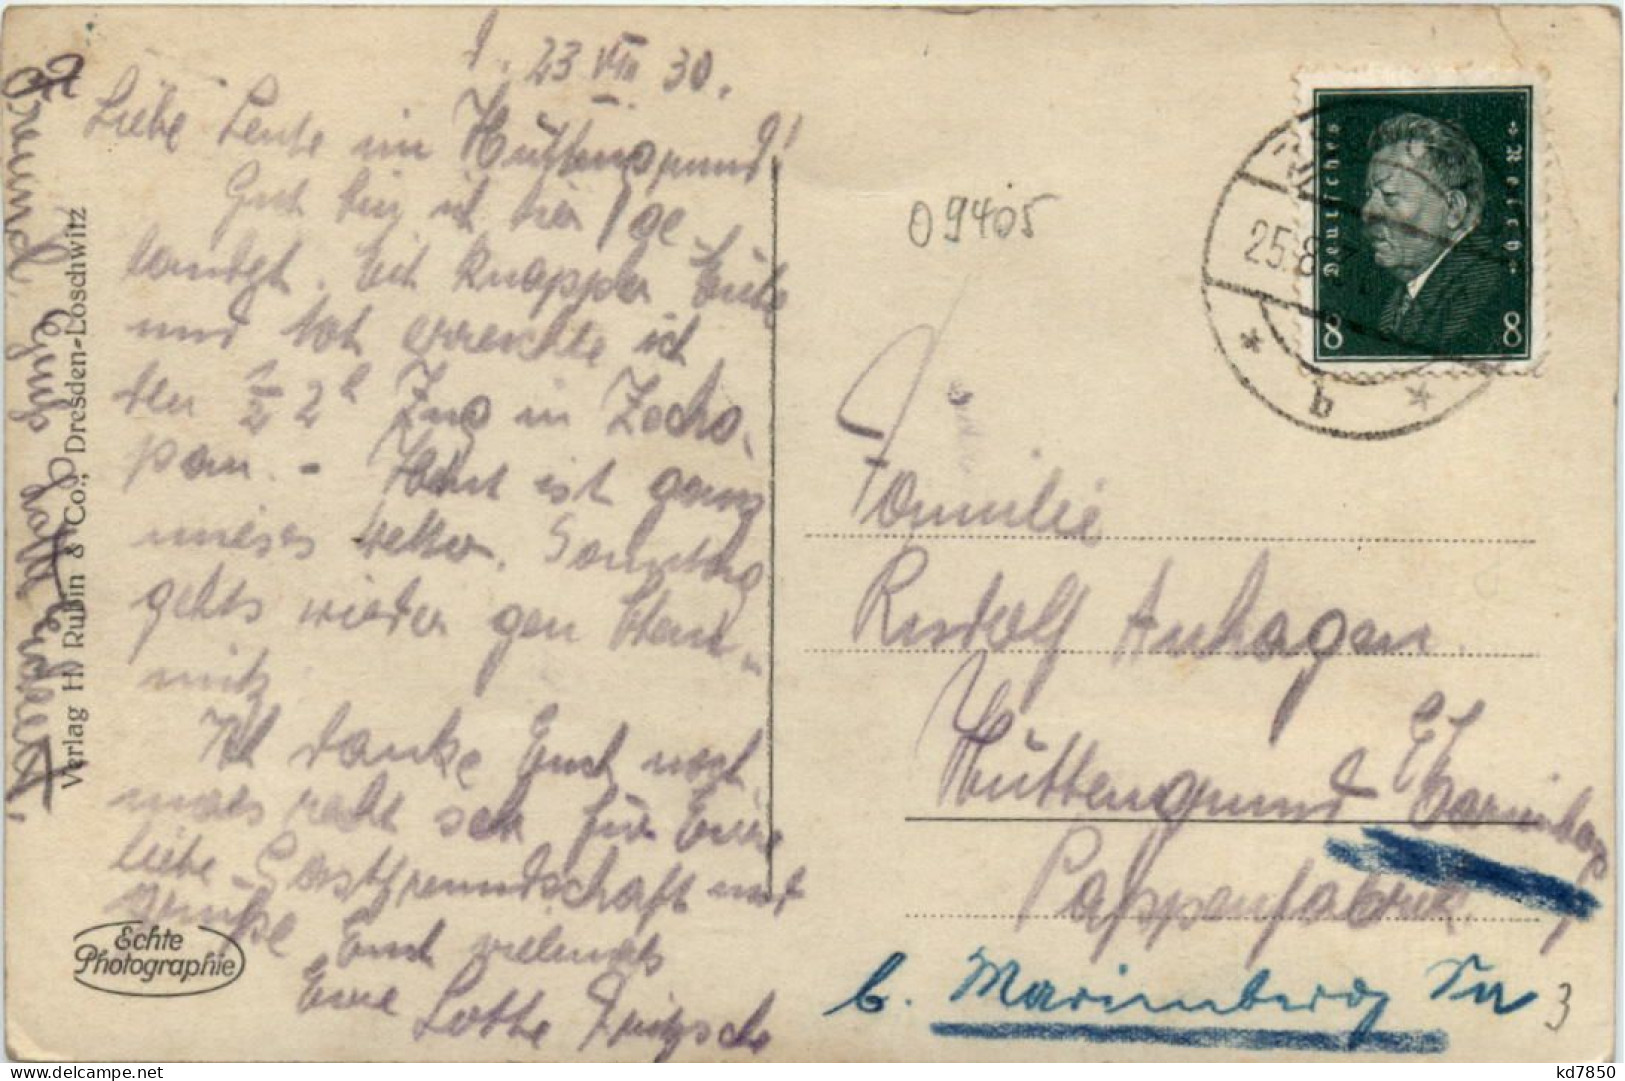 23 VIII 30.
Liebe Leute im Hüttengrund!
Gut bin ich hier ge
landet. Mit knapper Mühe
und Not erreichte ich
den 1/2 2 h Zug in Zscho-
pau. - Heut ist ganz
mieses Wetter. Sonntag
gehts wieder gen Chem-
nitz
Ich danke Euch noch
mals recht sehr für Eure
liebe Gastfreundschaft und
grüße Euch vielmals
Eure Lotte Fritzsche
Verlag H. Rubin & Co., Dresden-Loschwitz
Echte
Photographie
09405
Deutsches
Reich
8 8
25.8.
b
Familie
Rudolf Anhagen.
Hüttengrund
Pappenfabrik
b. Marienberg Sa
3
kd7850